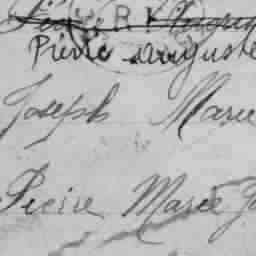 Pierre auguste
Joseph Marie
Pierre Marie